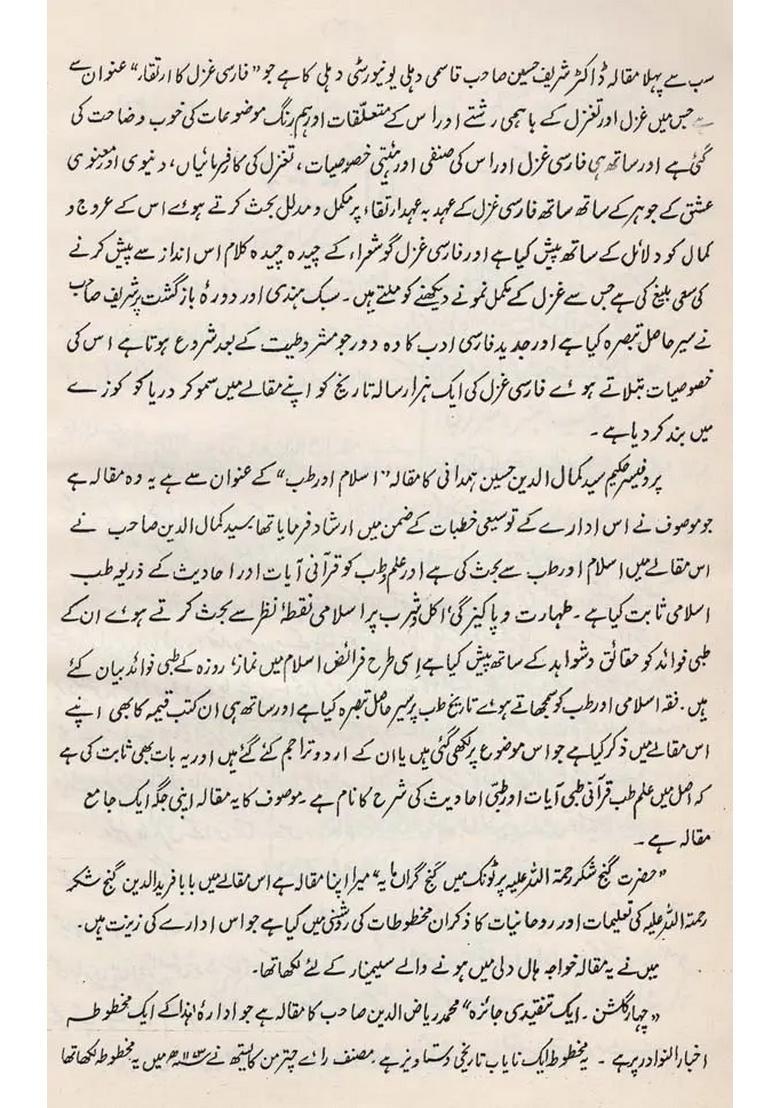 سب سے پہلا مقالہ ڈاکٹر شریف حسین صاحب قاسمی دہلی یونیورسٹی دہلی کا ہے جو "فارسی غزل کا ارتقاء" عنوان سے
ہے جس میں غزل اور تغزل کے باہمی رشتے اور اس کے متعلقات اور ہم رنگ موضوعات کی خوب وضاحت کی
گئی ہے اور ساتھ ہی فارسی غزل اور اس کی صنفی اور ہئیتی خصوصیات، تغزل کی کارفرمائیاں، دنیوی اور معنوی
عشق کے جوہر کے ساتھ ساتھ فارسی غزل کے عہد بہ عہد ارتقاء پر مکمل و مدلل بحث کرتے ہوئے اس کے عروج و
کمال کو دلائل کے ساتھ پیش کیا ہے اور فارسی غزل گو شعراء کے چیدہ چیدہ کلام اس انداز سے پیش کرنے
کی سعی بلیغ کی ہے جس سے غزل کے مکمل نمونے دیکھنے کو ملتے ہیں۔ سبک ہندی اور دورۂ بازگشت پر شریف صاحب
نے سیر حاصل تبصرہ کیا ہے اور جدید فارسی ادب کا وہ دور جو مشروطیت کے بعد شروع ہوتا ہے اس کی
خصوصیات بتلاتے ہوئے فارسی غزل کی ایک ہزار سالہ تاریخ کو اپنے مقالے میں سمو کر دریا کو کوزے
میں بند کر دیا ہے۔
پروفیسر حکیم سید کمال الدین حسین ہمدانی کا مقالہ "اسلام اور طب" کے عنوان سے ہے یہ وہ مقالہ ہے
جو موصوف نے اس ادارے کے توسیعی خطبات کے ضمن میں ارشاد فرمایا تھا۔ سید کمال الدین صاحب نے
اس مقالے میں اسلام اور طب سے بحث کی ہے اور علم طب کو قرآنی آیات اور احادیث کے ذریعہ طب
اسلامی ثابت کیا ہے۔ طہارت و پاکیزگی، اکل و شرب پر اسلامی نقطۂ نظر سے بحث کرتے ہوئے ان کے
طبی فوائد کو حقائق و شواہد کے ساتھ پیش کیا ہے اسی طرح فرائض اسلام میں نماز، روزہ کے طبی فوائد بیان کئے
ہیں۔ فقہ اسلامی اور طب کو سمجھاتے ہوئے تاریخ طب پر سیر حاصل تبصرہ کیا ہے اور ساتھ ہی ان کتب قیمہ کا بھی اپنے
اس مقالے میں ذکر کیا ہے جو اس موضوع پر لکھی گئی ہیں یا ان کے اردو تراجم کئے گئے ہیں اور یہ بات بھی ثابت کی ہے
کہ اصل میں علم طب قرآنی طبی آیات اور طبی احادیث کی شرح کا نام ہے۔ موصوف کا یہ مقالہ اپنی جگہ ایک جامع
مقالہ ہے۔
"حضرت گنج شکر رحمۃ اللہ علیہ پر ٹونک میں گنج گراں مایہ" میرا اپنا مقالہ ہے اس مقالے میں بابا فرید الدین گنج شکر
رحمۃ اللہ علیہ کی تعلیمات اور روحانیات کا ذکر ان مخطوطات کی روشنی میں کیا ہے جو اس ادارے کی زینت ہیں۔
میں نے یہ مقالہ خواجہ ہال دلی میں ہونے والے سیمینار کے لئے لکھا تھا۔
"چہار گلشن۔ ایک تنقیدی جائزہ" محمد ریاض الدین صاحب کا مقالہ ہے جو ادارۂ ہذا کے ایک مخطوطہ
اخبار النوادر پر ہے۔ یہ مخطوطہ ایک نایاب تاریخی دستاویز ہے۔ مصنف رائے چترمن کایستھ نے میں یہ مخطوطہ لکھا تھا